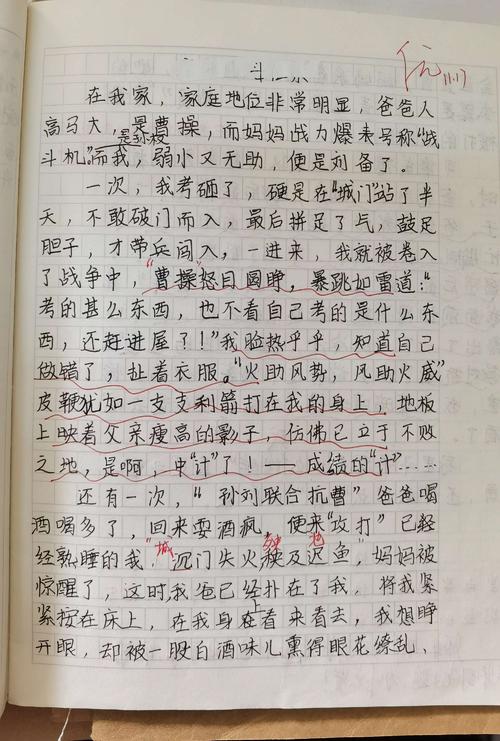 优 11.17
在我家，家庭地位非常明显，爸爸人
高马大，是曹操，而妈妈战力爆表号称"战
是孙权
斗机"。而我，弱小又无助，便是刘备了。
一次，我考砸了，硬是在"城门"站了半
天，不敢破门而入，最后拼足了气，鼓足
胆子，才带兵闯入，一进来，我就被卷入
了战争中，"曹操"怒目圆睁，暴跳如雷道："
考的甚么东西，也不看自己考的是什么东
西，还赶进屋？！"我脸热乎乎，知道自己
做错了，扯着衣服。"火助风势，风助火威"
皮鞭犹如一支支利箭打在我的身上，地板
上映着父亲瘦高的影子，仿佛已立于不败
之地，是啊，中"计"了！——成绩的"计"……
还有一次，"孙刘联合抗曹"爸爸喝
酒喝多了，回来耍酒疯，便来"攻打"已经
经熟睡的我，
城
沉门失火秧及迟鱼"，妈妈被
殃 池
惊醒了，这时,我爸已经扑在了我，将我紧
上
紧按在床上，在我身在看来看去，我想睁
开眼，却被一股白酒味儿熏得眼花缭乱、